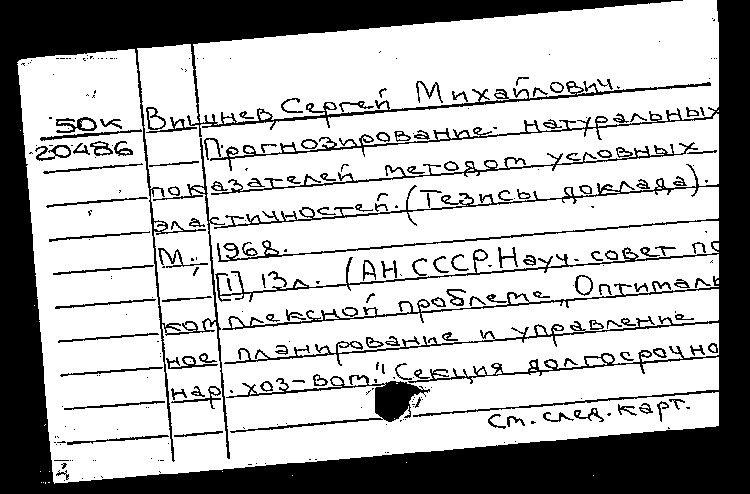 50К Вишнев, Сергей Михайлович.
20486 Прогнозирование натуральных
показателей методом условных
эластичностей. (Тезисы доклада).
М., 1968.
[1], 13л. (АН СССР. Науч. совет по
комплексной проблеме „Оптималь
ное планирование и управление
нар. хоз-вом." Секция долгосрочно
См. след. карт.